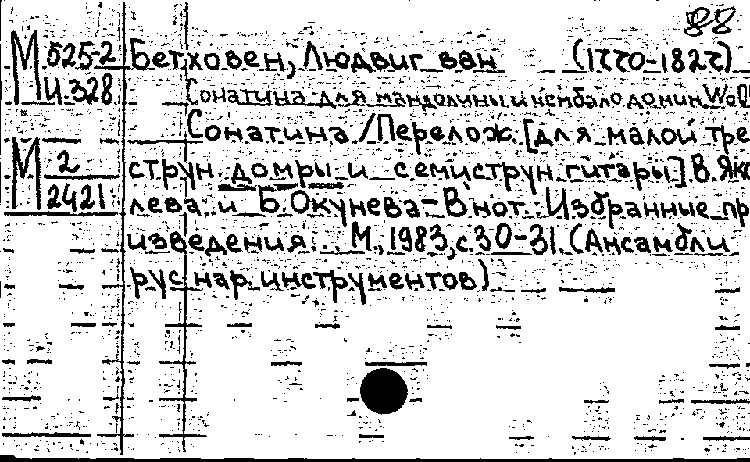 88
М 525-2 Бетховен, Людвиг ван (1770-1827)
И-328 Сонатина для мандолины и чембало до мин. WoO
Сонатина /Перелож. [для малой тре
М 2 струн. домры и семиструн. гитары] В. Яко
2421 лева и Б. Окунева - В нот.: Избранные пр
изведения. М., 1983, с. 30-31. (Ансамбли
рус нар. инструментов)